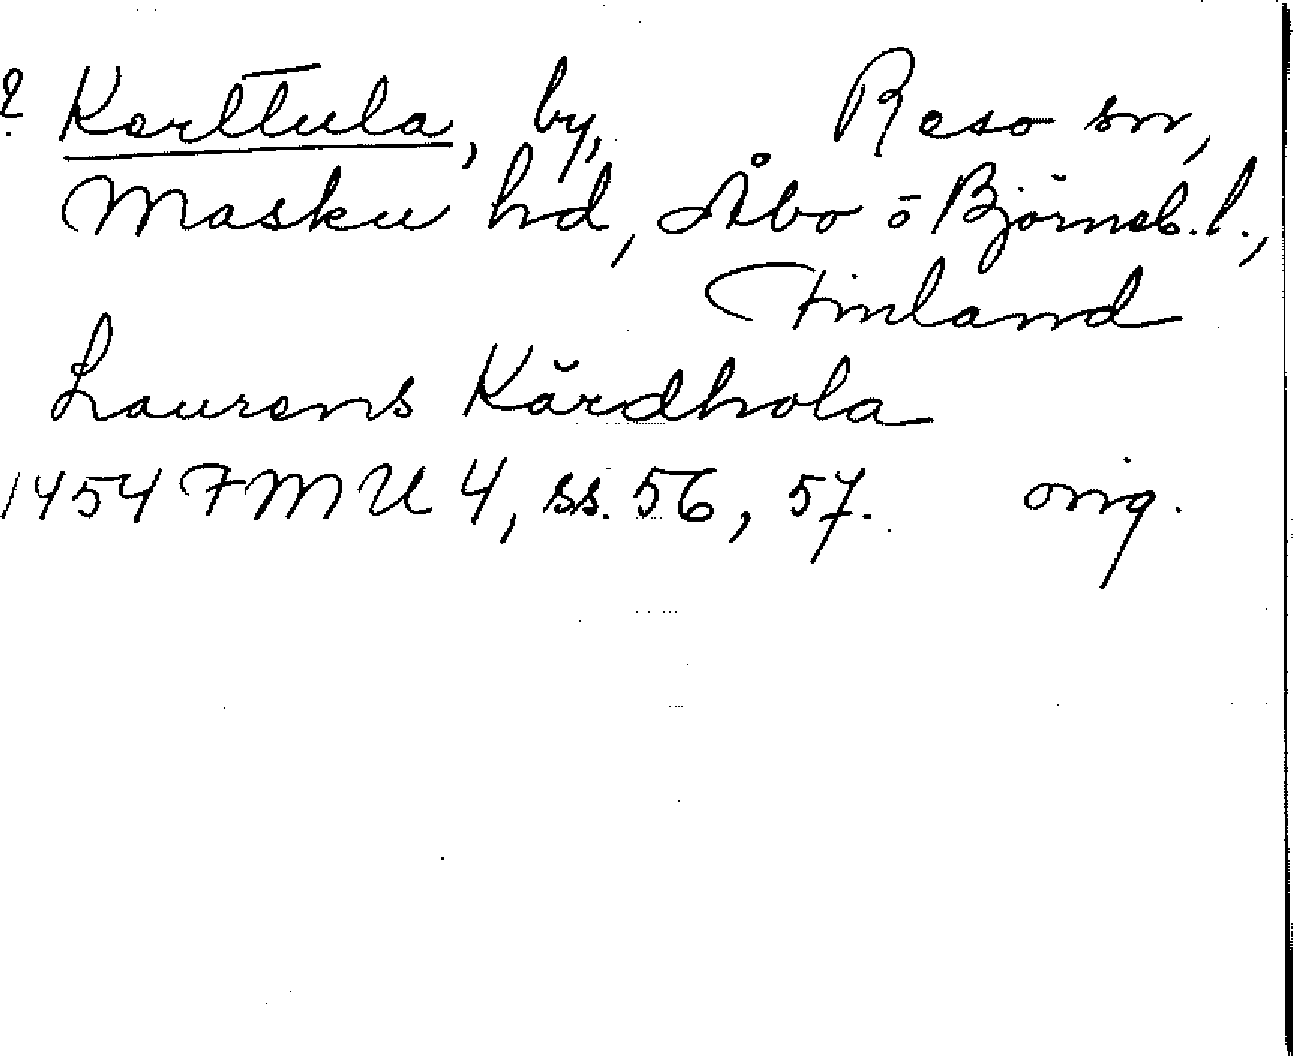 ? Kerttula, by, Reso sn,
Masku hd, Åbo o Björneb. l.,
Finland
Laurens Kärdhola
1454 FMU 4, ss. 56, 57. orig.